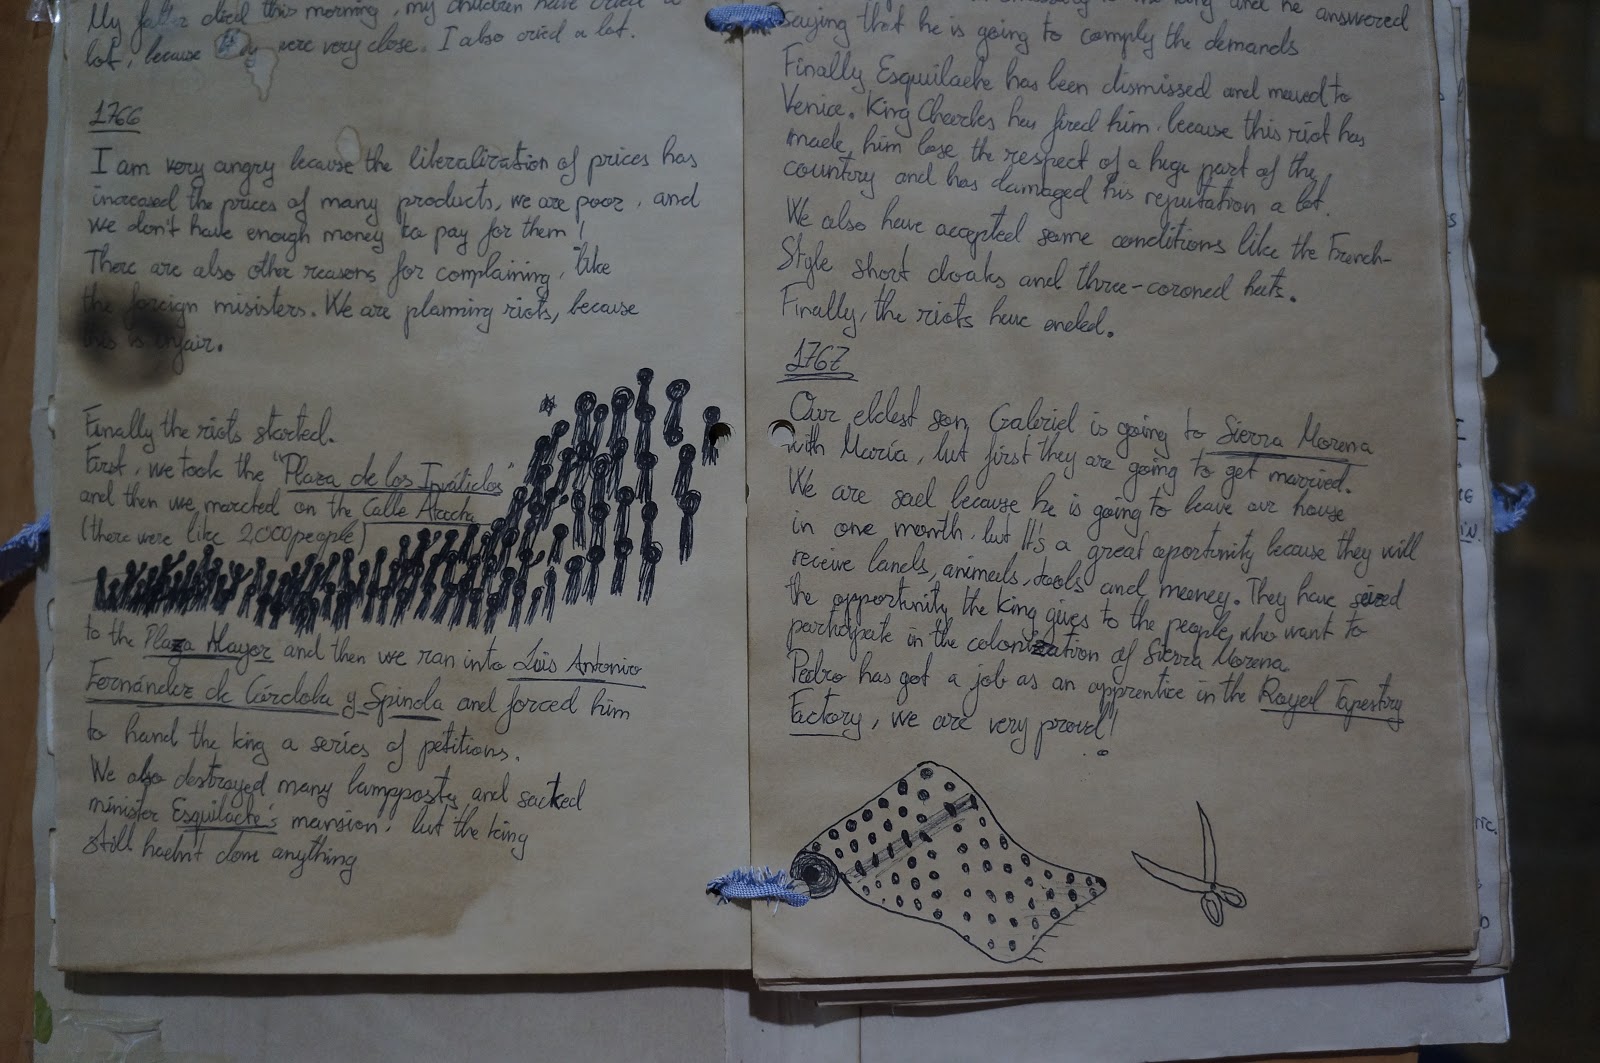 My father died this morning, my children have cried a
lot, because they were very close. I also cried a lot.
1766
I am very angry because the liberalization of prices has
increased the prices of many products, we are poor, and
we don't have enough money to pay for them!
There are also other reasons for complaining, like
the foreign misisters. We are planning riots, because
this is unfair.
Finally the riots started.
First, we took the "Plaza de los Inválidos"
and then we marched on the Calle Atocha
(there were like 2,000 people)
to the Plaza Mayor and then we ran into Luis Antonio
Fernández de Córdoba y Spinola and forced him
to hand the king a series of petitions.
We also destroyed many lampposts and sacked
minister Esquilache's mansion, but the king
still hasn't done anything
to the king and he answered
saying that he is going to comply the demands
Finally Esquilache has been dismissed and moved to
Venice. King Charles has fired him, because this riot has
made him lose the respect of a huge part of the
country and has damaged his reputation a lot.
We also have accepted some conditions like the French-
Style short cloaks and three-coroned hats.
Finally, the riots have ended.
1767
Our eldest son, Gabriel is going to Sierra Morena
with María, but first they are going to get married.
We are sad because he is going to leave our house
in one month, but It's a great oportunity because they will
receive lands, animals, tools and money. They have seized
the opportunity the king gives to the people who want to
participate in the colonization of Sierra Morena.
Pedro has got a job as an apprentice in the Royal Tapestry
Factory, we are very proud!